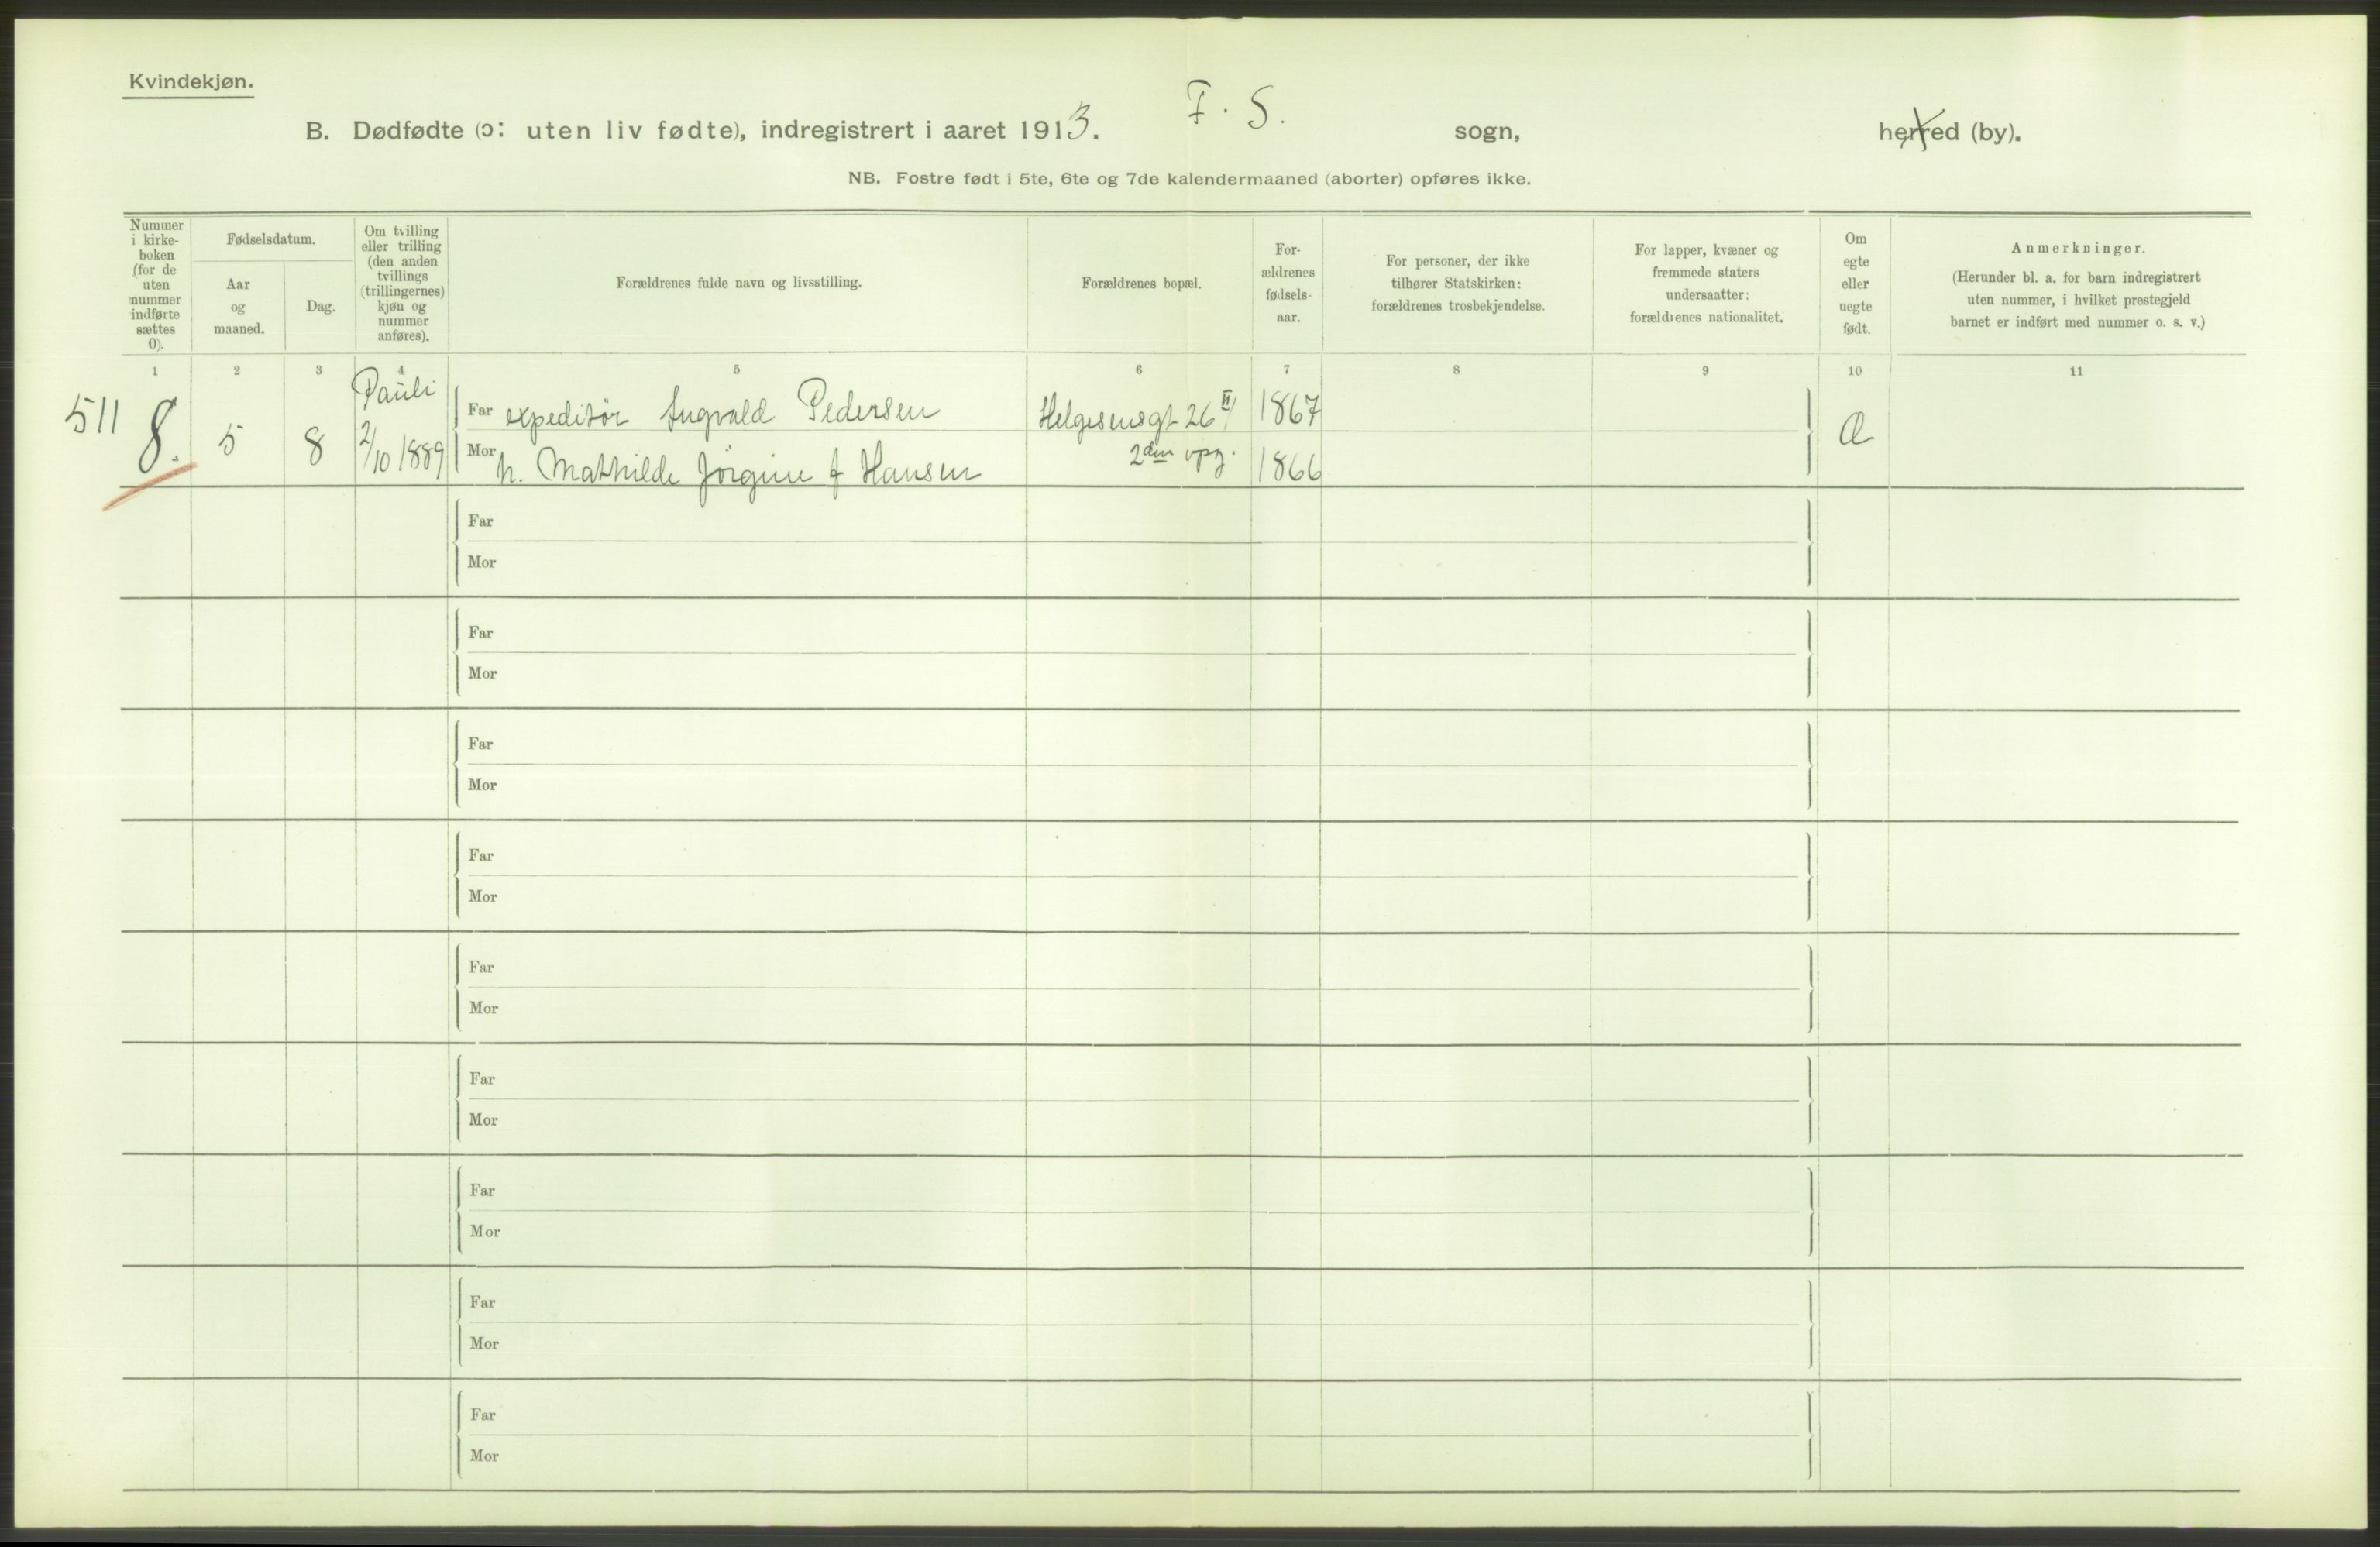 Kvindekjøn.
B. Dødfødte (ɔ: uten liv fødte), indregistrert i aaret 1913. F. S. sogn, herred (by).
NB. Fostre født i 5te, 6te og 7de kalendermaaned (aborter) opføres ikke.
Nummer
i kirke-
boken
(for de
uten
nummer
indførte
sættes
0).
Fødselsdatum.
Aar
og
maaned.
Dag.
Om tvilling
eller trilling
(den anden
tvillings
(trillingernes)
kjøn og
nummer
anføres).
Forældrenes fulde navn og livsstilling.
Forældrenes bopæl.
For-
ældrenes
fødsels-
aar.
For personer, der ikke
tilhører Statskirken:
forældrenes trosbekjendelse.
For lapper, kvæner og
fremmede staters
undersaatter:
forældrenes nationalitet.
Om
egte
eller
uegte
født.
Anmerkninger.
(Herunder bl. a. for barn indregistrert
uten nummer, i hvilket prestegjeld
barnet er indført med nummer o. s. v.)
1 2 3 4 5 6 7 8 9 10 11
511 8. 5 8
Pauli
2/10 1889
Far expeditør Ingvald Pedersen Helgesensgt 26 II/ 1867
Mor h. Mathilde Jørgine f Hansen 2den opg. 1866
Æ
Far
Mor
Far
Mor
Far
Mor
Far
Mor
Far
Mor
Far
Mor
Far
Mor
Far
Mor
Far
Mor